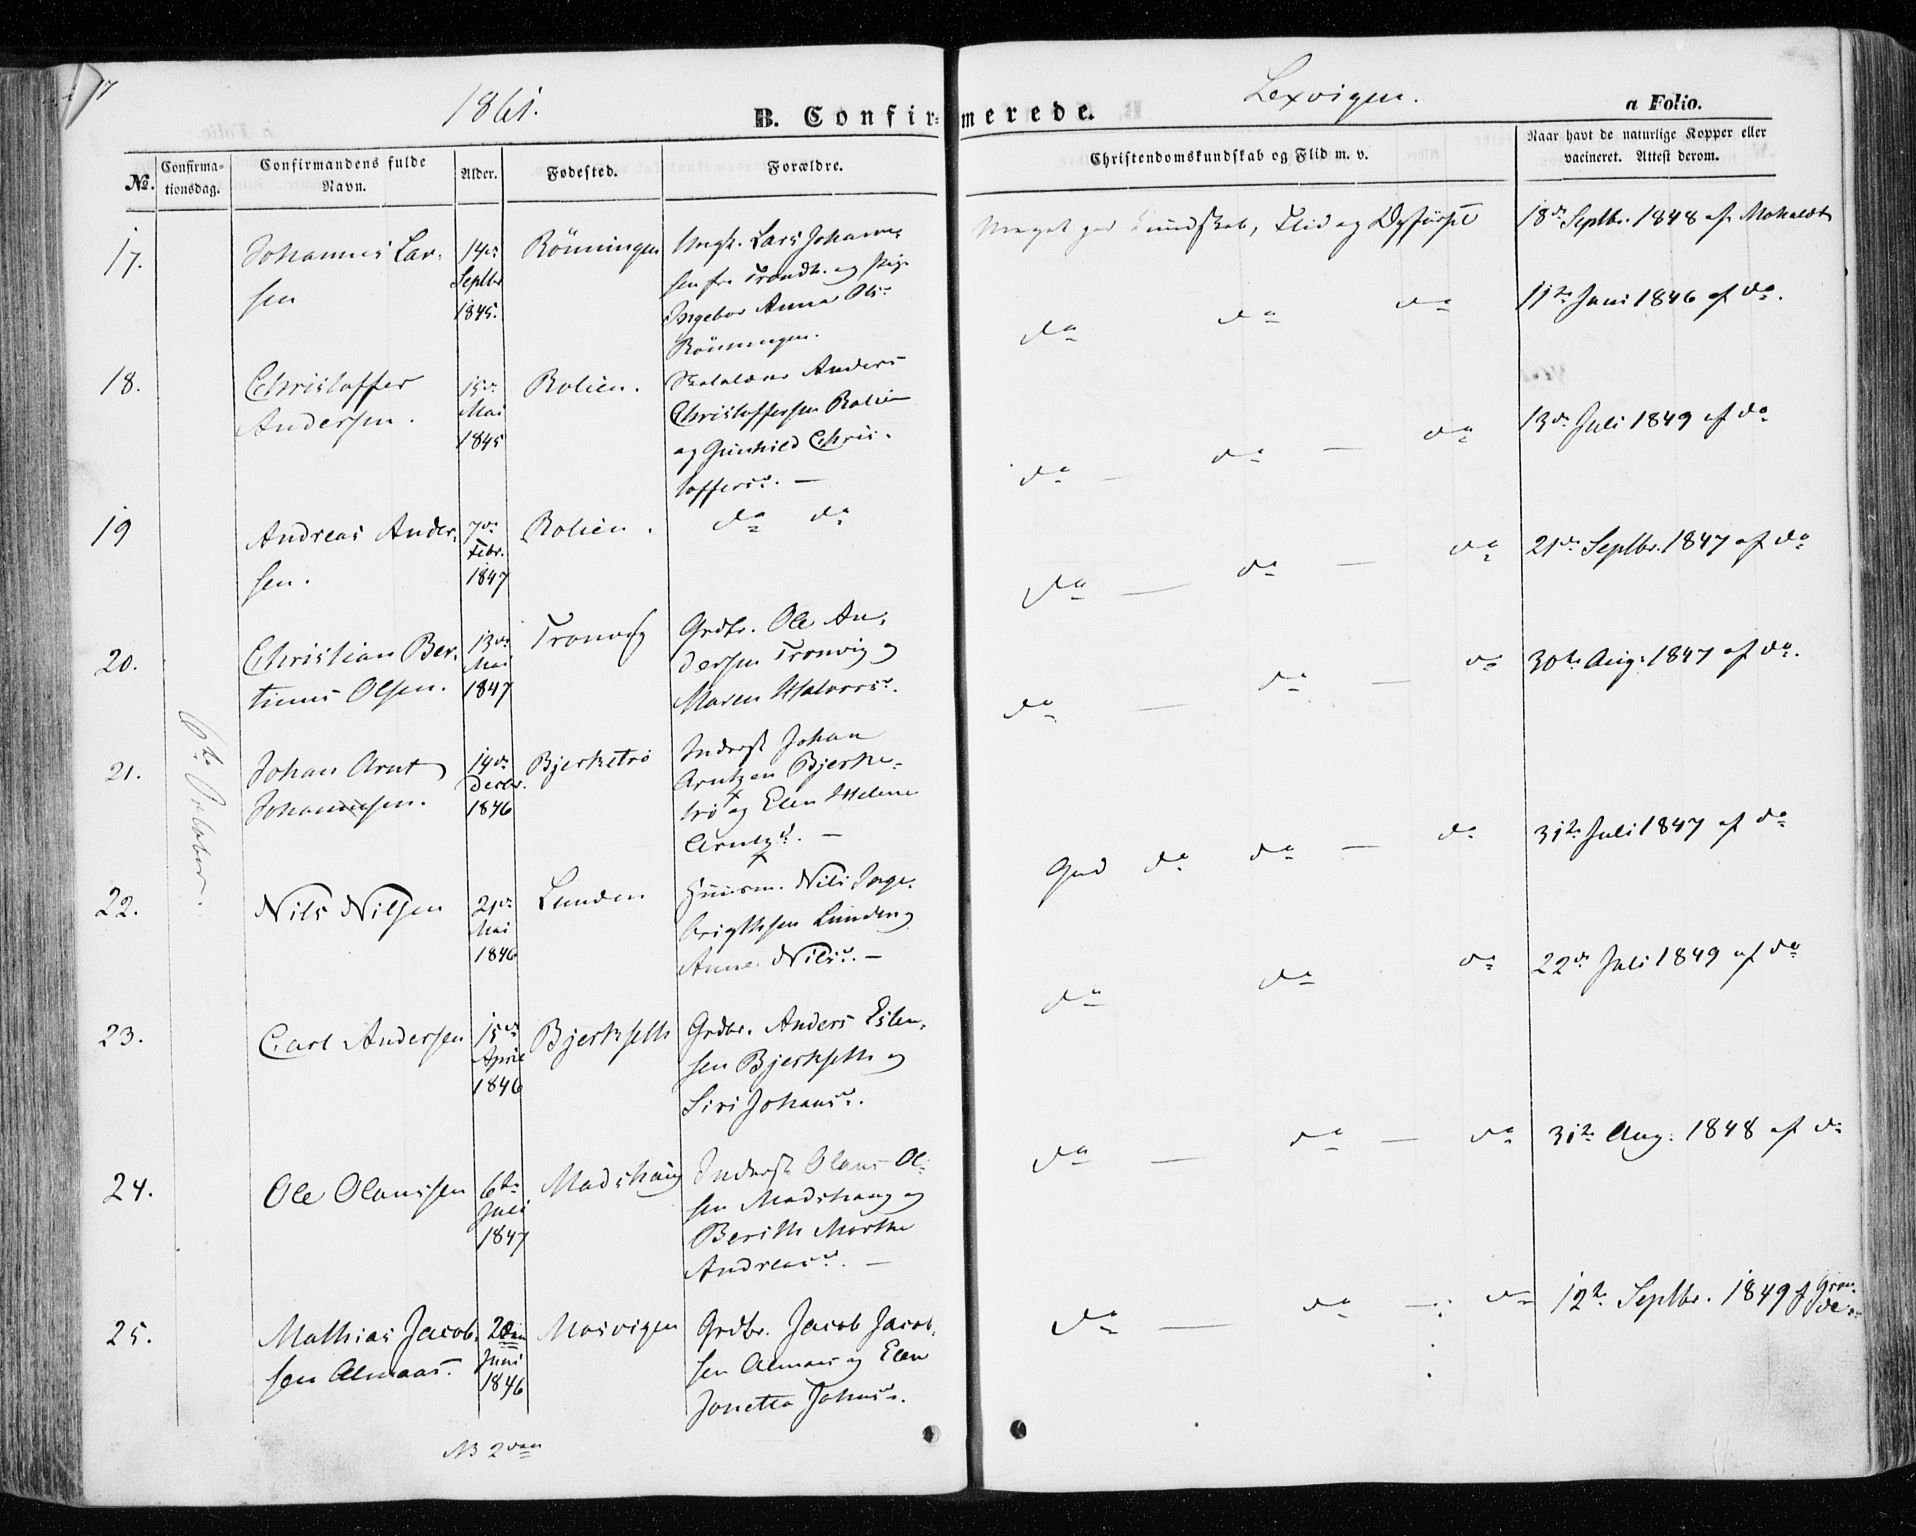 1861.
Lexvigen.
B. Confirmerede.
a Folio.
No.
Confirma-
tionsdag.
Confirmandens fulde
Navn.
Alder.
Fødested.
Forældre.
Christendomskundskab og Flid m. v.
Naar havt de naturlige Kopper eller
vacineret. Attest derom.
6te October.
17.
Johannes Lar-
sen
14de
Septbr
1845.
Rönningen
Ungk. Lars Johanne-
sen fra Trondh. og Pige
Ingebor Anna Olsd.
Rönningen.
Meget god Kundskab, Flid og Opførsel
18de Septbr. 1848 af
18.
Christoffer
Andersen.
15de
Mai
1845
Rolien.
Anders
Christoffersen Rolien
og Gunhild Chris-
toffersd. —
do do do
11te Juni 1846 af do.
19
Andreas Ander-
sen.
7de
Febr.
1847
Rolien.
do do
do — do — do
13de Juli 1849 af do
20.
Christian Ber-
tinus Olsen.
13de
Mai
1847
Tronvig
Grdbr. Ole An-
dersen Tronvig og
Maren Halvorsd.
do — do — do
21de Septbr. 1847 af do
21.
Johan Arnt
Johannesen.
14de
Decbr.
1846
Bjerketrö
Inderst Johan
Arntzen Bjerke-
trö og Elen Helene
Arntzd. —
do — do — do
30te Aug. 1847 af do.
22.
Nils Nilsen
21de
Mai
1846
Lunden
Huusm. Nils Inge-
brigthsen Lunden og
Anne Nilsd. —
God do do — do
31te Juli 1847 af do
23.
Carl Andersen
15de
April
1846
Bjerksetth
Grdbr. Anders Esten-
sen Bjerksetth og
Siri Johansd.
do do do
22de Juli 1849 af do
24.
Ole Olaussen
6te
Juli
1847
Madshaug
Inderst Olaus Ol-
sen Madshaug og
Berith Marthe
Andreasd. —
do — do — do
31te Aug. 1848 af do
25.
Mathias Jacob-
sen Almaas.
2den
Juni
1846
Mosvigen
Grdbr. Jacob Jacob-
sen Almaas og Elen
Jonetta Johnsd.
do — do — do
12te Septbr. 1849 f
NB 2den